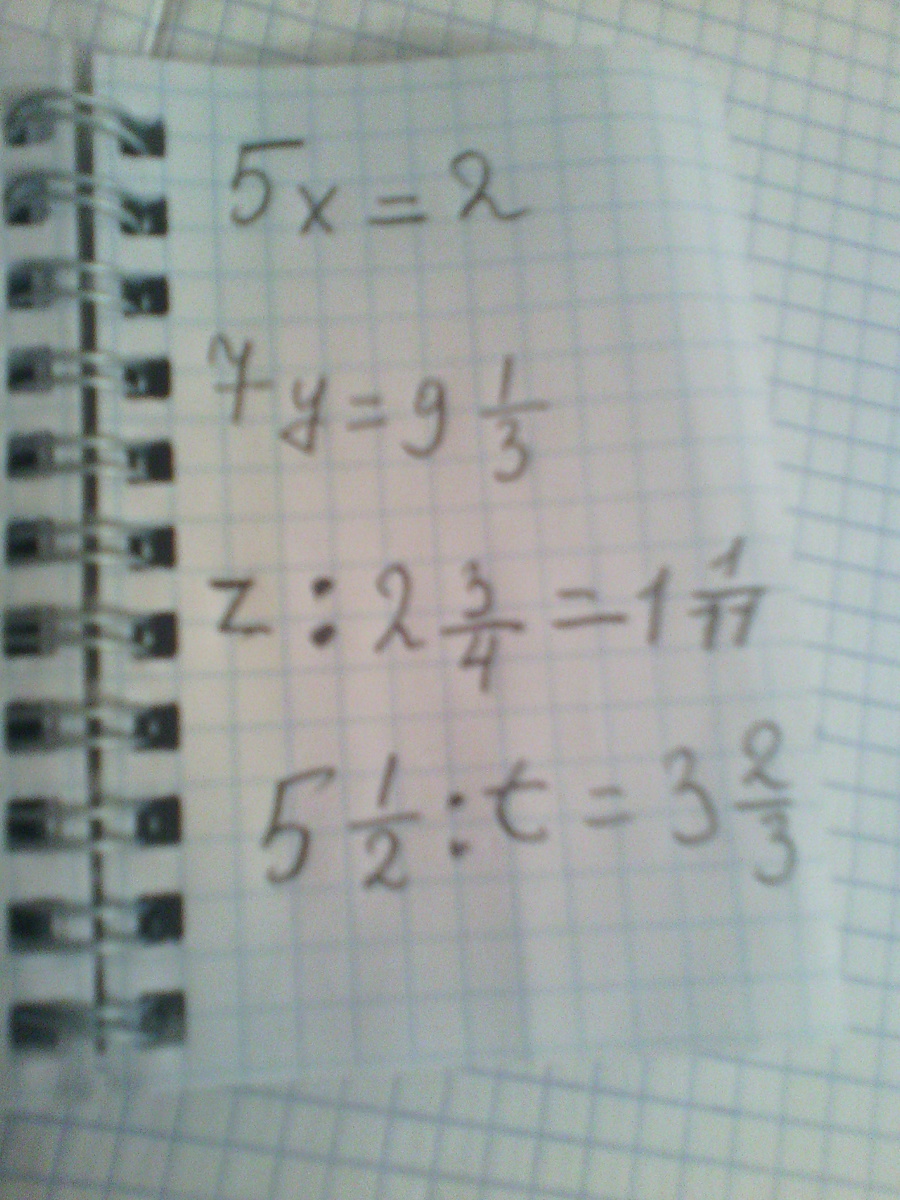 5x = 2
7y = 9 1/3
z : 2 3/4 = 1 1/11
5 1/2 : t = 3 2/3